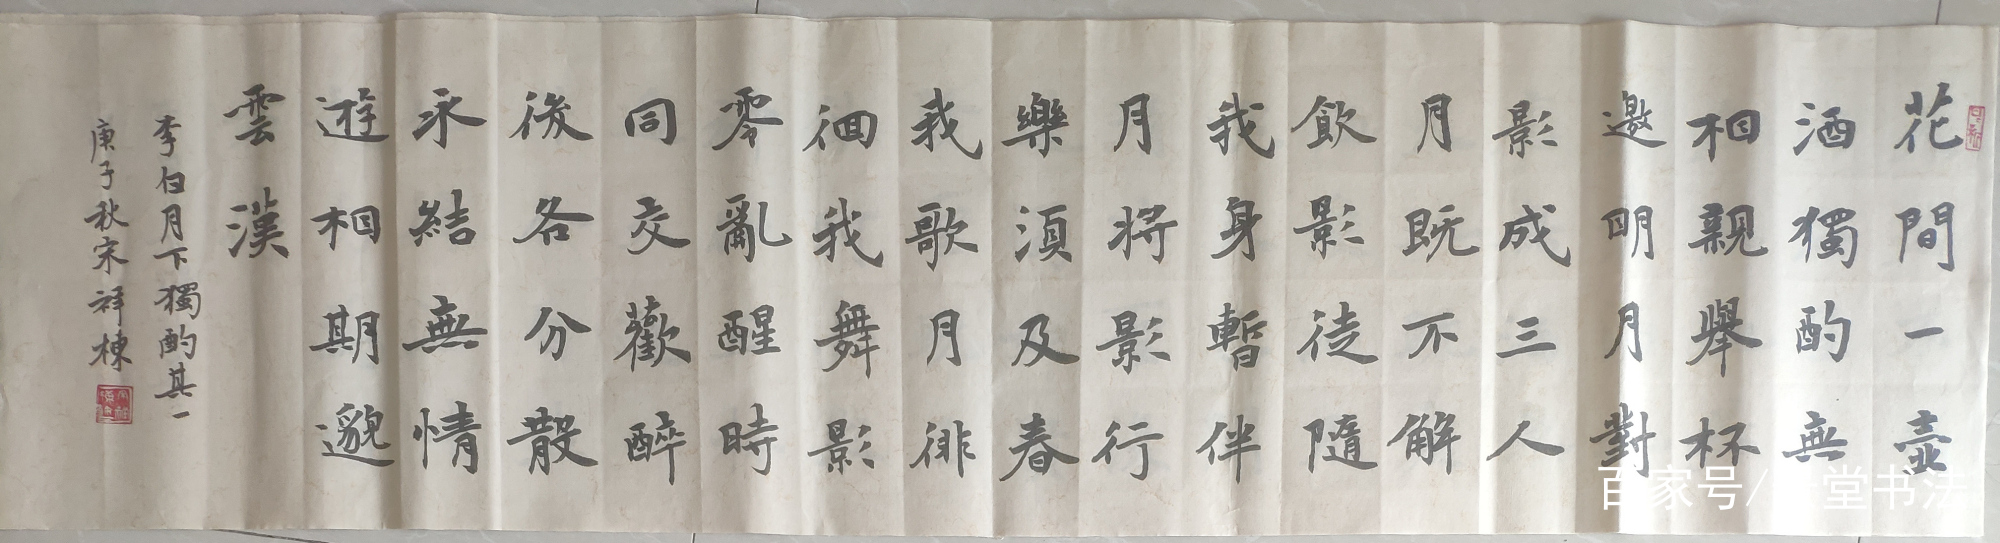 花間一壺
酒獨酌無
相親舉杯
邀明月對
影成三人
月既不解
飲影徒隨
我身暫伴
月將影行
樂須及春
我歌月徘
徊我舞影
零亂醒時
同交歡醉
後各分散
永結無情
遊相期邈
雲漢
李白月下獨酌其一
庚子秋宋祥棟
百家号/堂书法